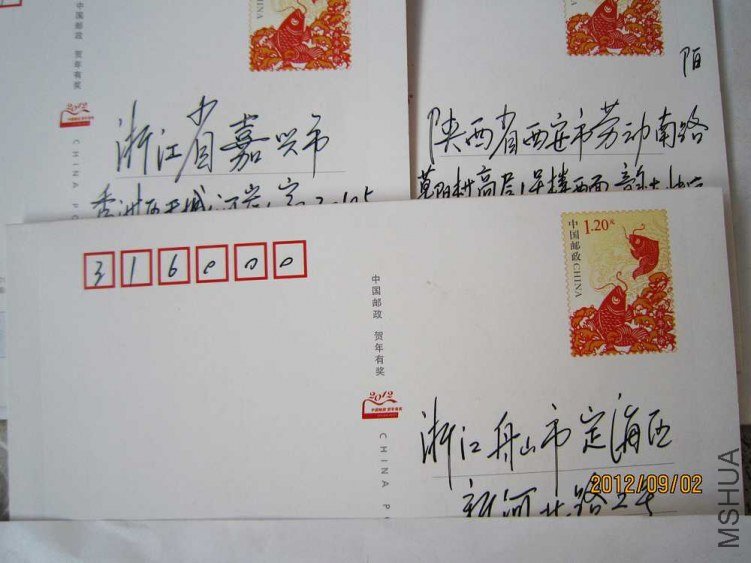 中国邮政 贺年有奖
2012
CHINA
浙江省嘉兴市
陌
陕西省西安市劳动南路
316000
中国邮政 贺年有奖
2012
中国邮政 贺年有奖
CHINA PO
1.20元
中国邮政 CHINA
浙江舟山市定海区
新河北路
2012/09/02
MSHUA